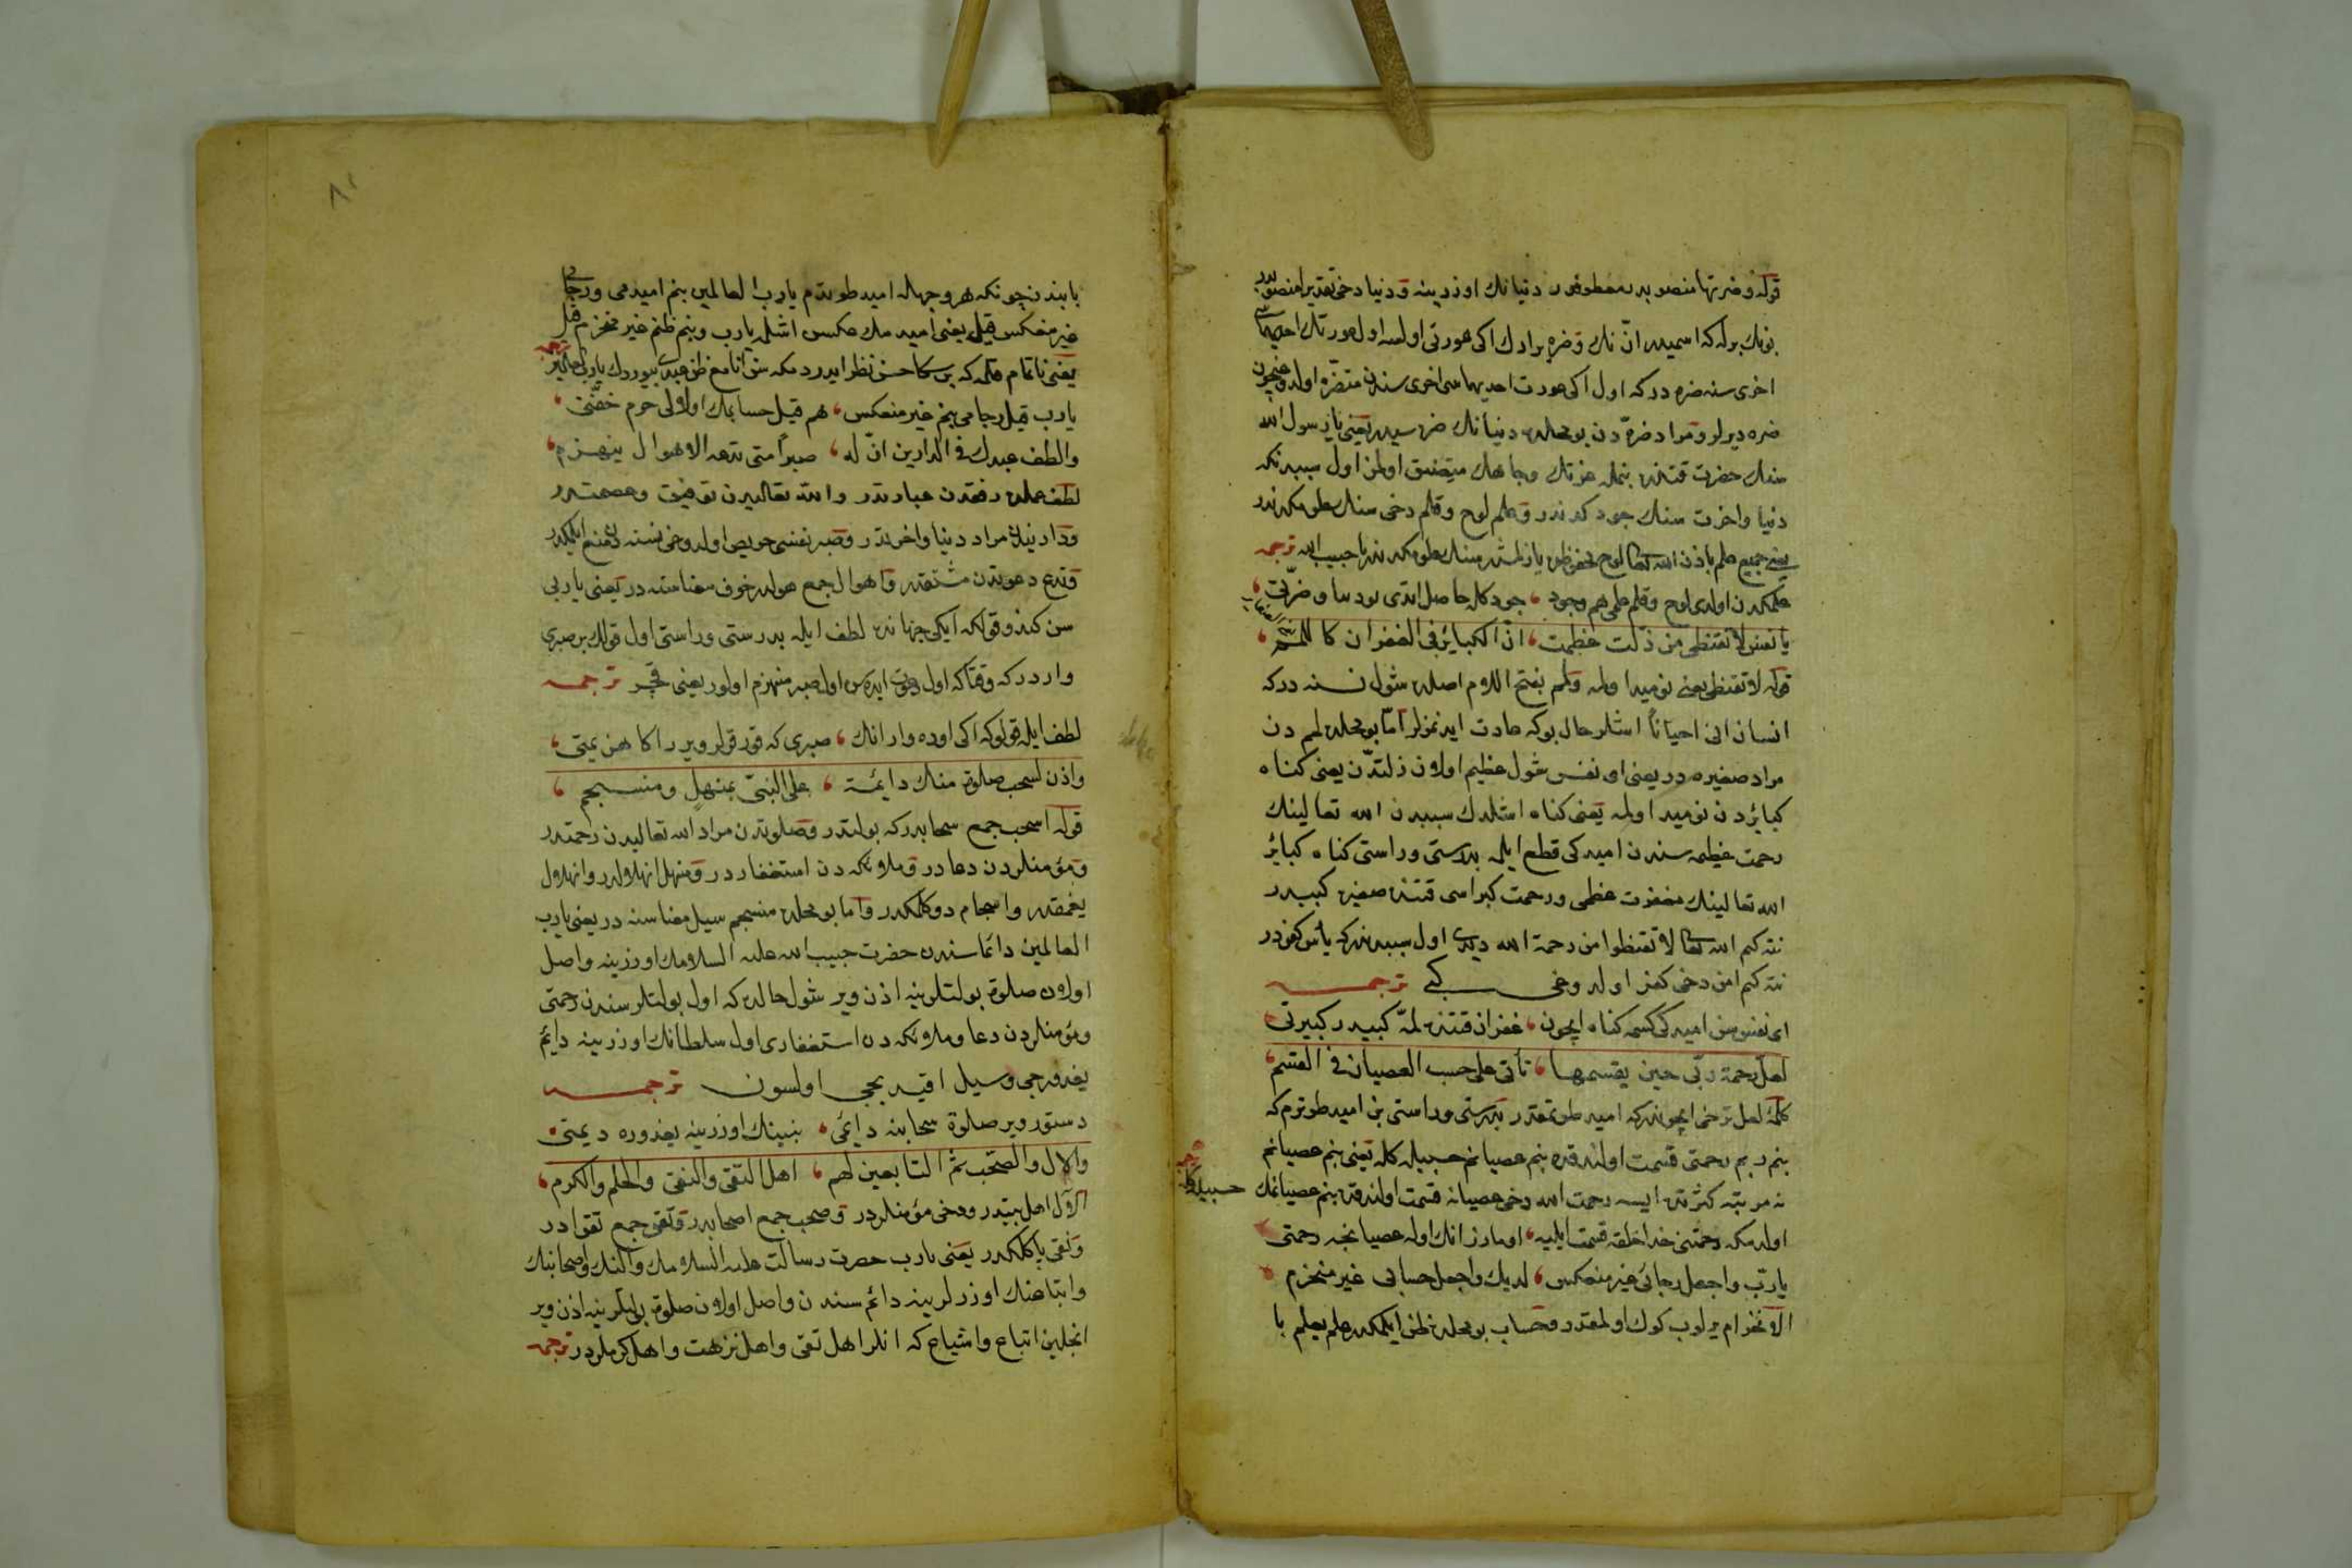 قوله وضرتها منصوبدر معطوفدر دنيانك اوزرينه و دنيا دخى تقديرا منصوبدر
بونك برله كه اسميدر انّ نك و ضره برادك اكى عورتى اولسه اول عورتك احديهما
اخرى سنه ضره دركه اول اكى عورت احديهماسى اخرى سندن متضرّه اولدوغيچون
ضره ديرلر و مراد ضرّه دن بو محلده دنيانك ضره سيدر يعنى يا رسول الله
سنك حضرت قتنده بنمله عزتك وجاهك متضيق اولمز اول سببدنكه
دنيا واخرت سنك جودكدندر و علم لوح وقلم دخى سنك علومكدندر
يعنى جميع علم باذن الله تعالى لوح محفوظده يازلمشدر سنك علومكدندر يا حبيب الله ترجمه
علمكدن اولدى لوح وقلم علمى هم وجود ، جودكله حاصل اتدى بو دنيا و ضرّتى ،
يا نفس لا تقنطى من ذلّت عظمت ، انّ الكبائر فى الغفران كاللمم ،
قوله لا تقنطى يعنى نوميد اولمه ولمم بفتح اللام اصلده شول نسنه دركه
انسان انى احياناً اشلر حال بوكه عادت ايدنمزلر امّا بو محلده لمم دن
مراد صغيره در يعنى اى نفس شول عظيم اولان ذلتدن يعنى كناه
كبائردن نوميد اولمه يعنى كناه اشلدك سببدن الله تعالينك
رحمت عظيمه سندن اميدكى قطع ايله بدرستى وراستى كناه كبائر
الله تعالينك مغفرت عظمى ورحمت كبراسى قتنده صغيره كبيدر
نته كم الله تعالى لا تقنطوا من رحمة الله ديدى اول سببدندركه يأس كفردر
نته كم امن دخى كفر اولدوغى كبى ترجمه
اى نفس سن اميدكى كسمه كناه ايچون ، غفران قتنده لمّه كبيدر كبيرتى
لعلّ رحمة ربّى حين يقسمها ، تأتى على حسب العصيان فى القسم ،
كلمۀ لعل ترجى ايچوندركه اميد طوتمقدر بدرستى وراستى بن اميد طوترم كه
بنم ربم رحمتى قسمت اولندقده بنم عصيانم حسبيله كله يعنى بنم عصيانم
نه مرتبه كثرتده ايسه رحمت الله دخى عصيانه قسمت اولندقده بنم عصيانمك حسبيله كله
اولمكه رحمتنى خدا خلقه قسمت ايليه ، اومارز انك اوله عصيانجه رحمتى
يا ربّ واجعل رجائى غير منعكس ، لديك واجعل حسابى غير منخرم
الانخرام يرلوب كوك اولمقدر وحساب بو محلده ظن ايلمكدر علم يعلم با
بابندن چونكه هر وجهله اميد طوتدم يا رب العالمين بنم اميدمى ورجامى
غير منعكس قيل يعنى اميدمك عكس اشلمه يا رب وبنم ظنم غير منخرم قيل
يعنى ناتمام قلمه كه بن سكا حسن ظن ايدردمكه سن انا مع ظن عبدى بيوردك يا رب العالمين ترجمه
يا رب قيل رجامى بنم غير منعكس ، هم قيل حسابمك اولاولى حرم خفّتى ،
والطف بعبدك فى الدارين انّ له ، صبراً متى تدعه الاهوال ينهزم ،
لطف عملده رفقدن عبارتدر والله تعاليدن توفيق وعصمتدر
ودارينلدن مراد دنيا واخرتدر وصبر نفسى حريص اولدوغى نسنه دن منع ايلمكدر
وتدع دعوتدن مشتقدر واهوال جمع هولدر خوف معناسنه در يعنى يا ربى
سن كندو قولكه ايكى جهانده لطف ايله بدرستى وراستى اول قولك بر صبرى
واردركه وقتاكه اول دعوت ايدرسن اول صبر منهزم اولور يعنى قچر ترجمه
لطف ايله قولوكه اكى اوده وار انك ، صبرى كه قور قولر ويررا كا هزيمتى ،
واذن لسحب صلوة منك دائمة ، على النبىّ بمنهلٍ ومنسجم ،
قوله اسحب جمع سحابدركه بولتدر وصلوتدن مراد الله تعاليدن رحمتدر
ومؤمنلردن دعادر وملائكه دن استغفاردر ومنهل انهلالدر وانهلال
يغمقدر وانسجام دوكلمكدر واما بو محلده منسجم سيل معناسنه در يعنى يا رب
العالمين دائما سندن حضرت حبيب الله عليه السلامك اوزرينه واصل
اولان صلوة بولتلرينه اذن وير شول حالده كه اول بولتلر سندن رحمتى
ومؤمنلردن دعا وملائكه دن استغفارى اول سلطانك اوزرينه دايم
يغدورجى وسيل اقيدبجى اولسون ترجمه
دستور وير صلوة سحابنه دايمى ، نبينك اوزرينه يغدوره ديمتى
والآل والصحب ثم التابعين لهم ، اهل التّقى والنقى والحلم والكرم ،
الآل اهل بيتدر ودخى مؤمنلردر وصحب جمع اصحابدر وتقى جمع تقوادر
ونقى پاكلكدر يعنى يا رب حضرت رسالت عليه السلامك والنك واصحابنك
واتباعنك اوزرلرينه دائم سندن واصل اولان صلوة بولتلرينه اذن وير
انجلين اتباع واشياع كه انلر اهل تقى واهل نزهت واهل كرملردر ترجمه